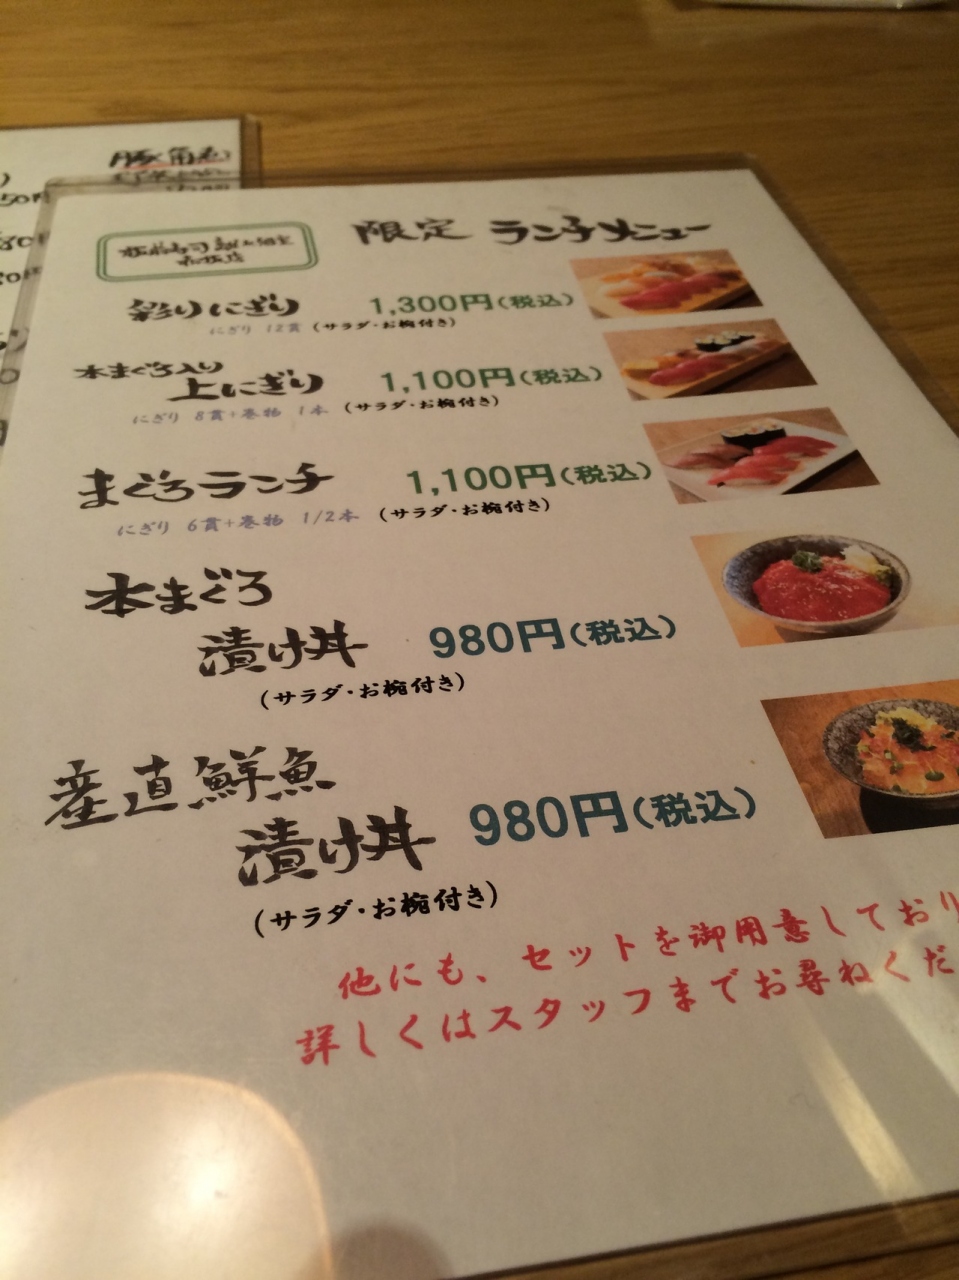 限定 ランチメニュー
赤坂店
彩りにぎり 1,300円(税込)
にぎり 12貫 (サラダ・お椀付き)
本まぐろ入り
上にぎり 1,100円(税込)
にぎり 8貫+巻物 1本 (サラダ・お椀付き)
まぐろランチ 1,100円(税込)
にぎり 6貫+巻物 1/2本 (サラダ・お椀付き)
本まぐろ
漬け丼 980円(税込)
(サラダ・お椀付き)
産直鮮魚
漬け丼 980円(税込)
(サラダ・お椀付き)
他にも、セットを御用意しており
詳しくはスタッフまでお尋ねくだ
豚角煮